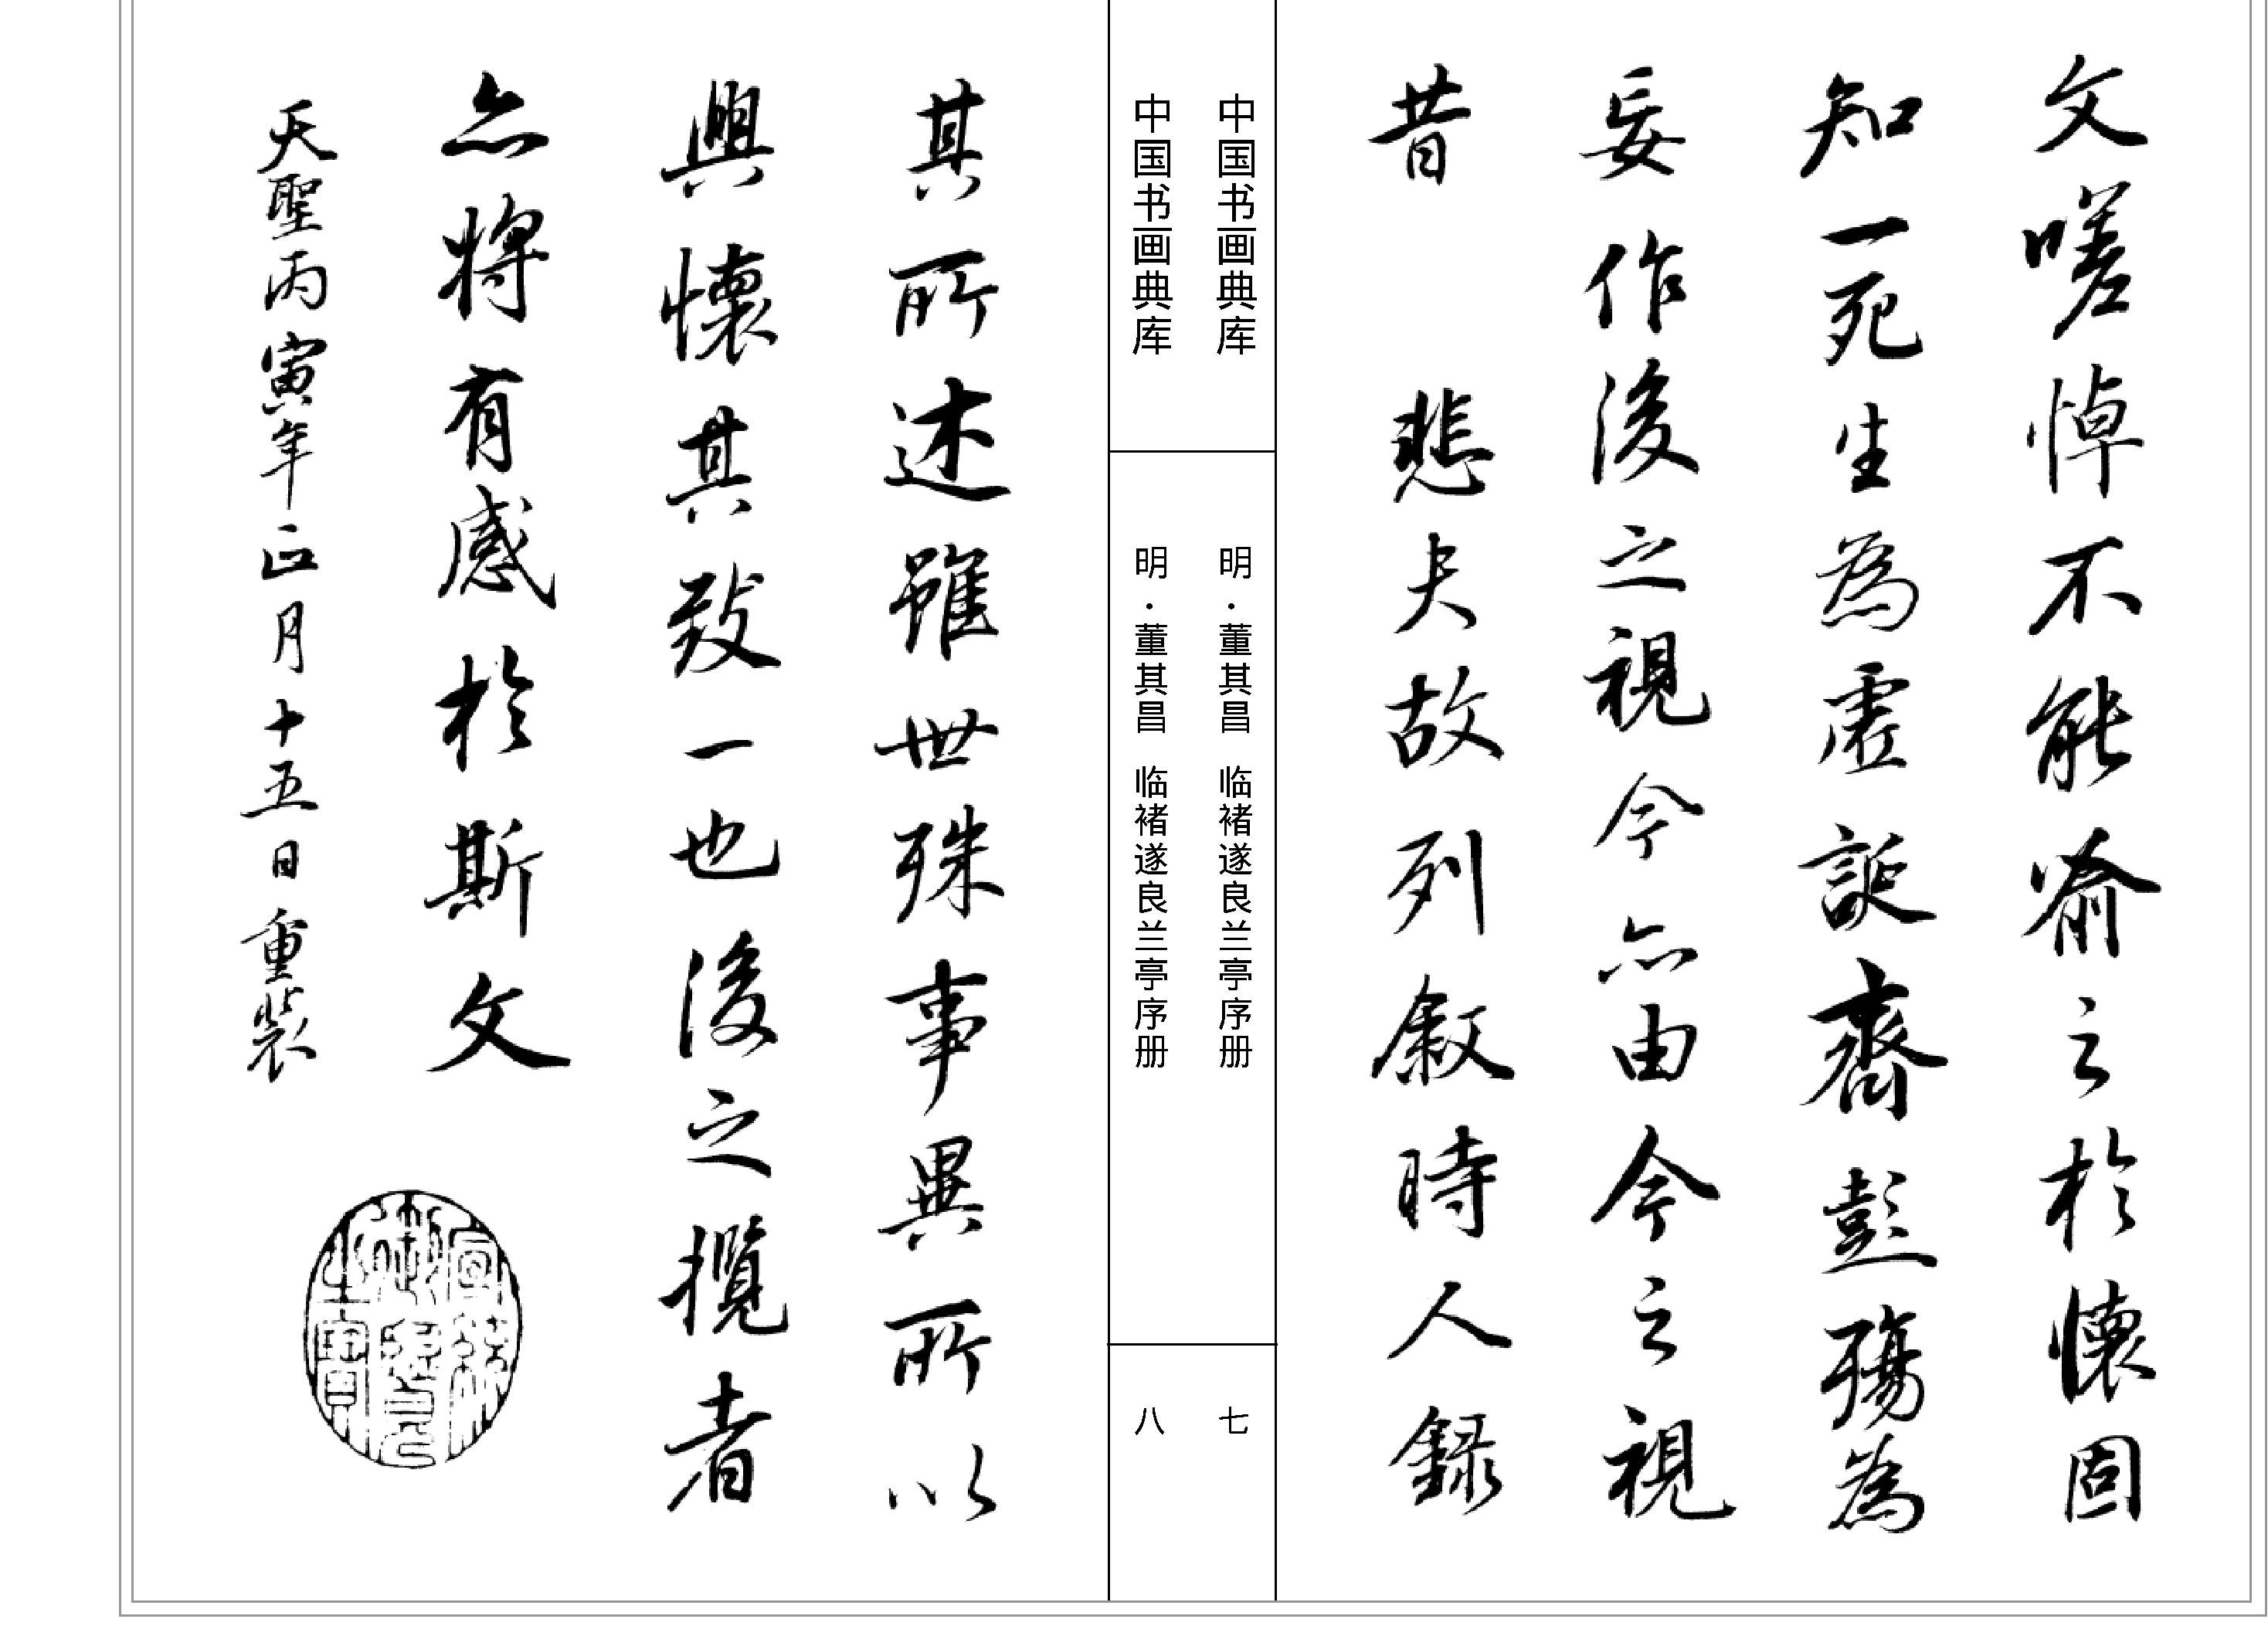 文嗟悼不能喻之於懷固
知一死生為虛誕齊彭殤為
妄作後之視今亦由今之視
昔 悲夫故列叙時人録
中国书画典库 明·董其昌 临褚遂良兰亭序册 七
中国书画典库 明·董其昌 临褚遂良兰亭序册 八
其所述雖世殊事異所以
興懷其致一也後之攬者
亦將有感於斯文
宣統御覽之寶
天聖丙寅年正月十五日重裝